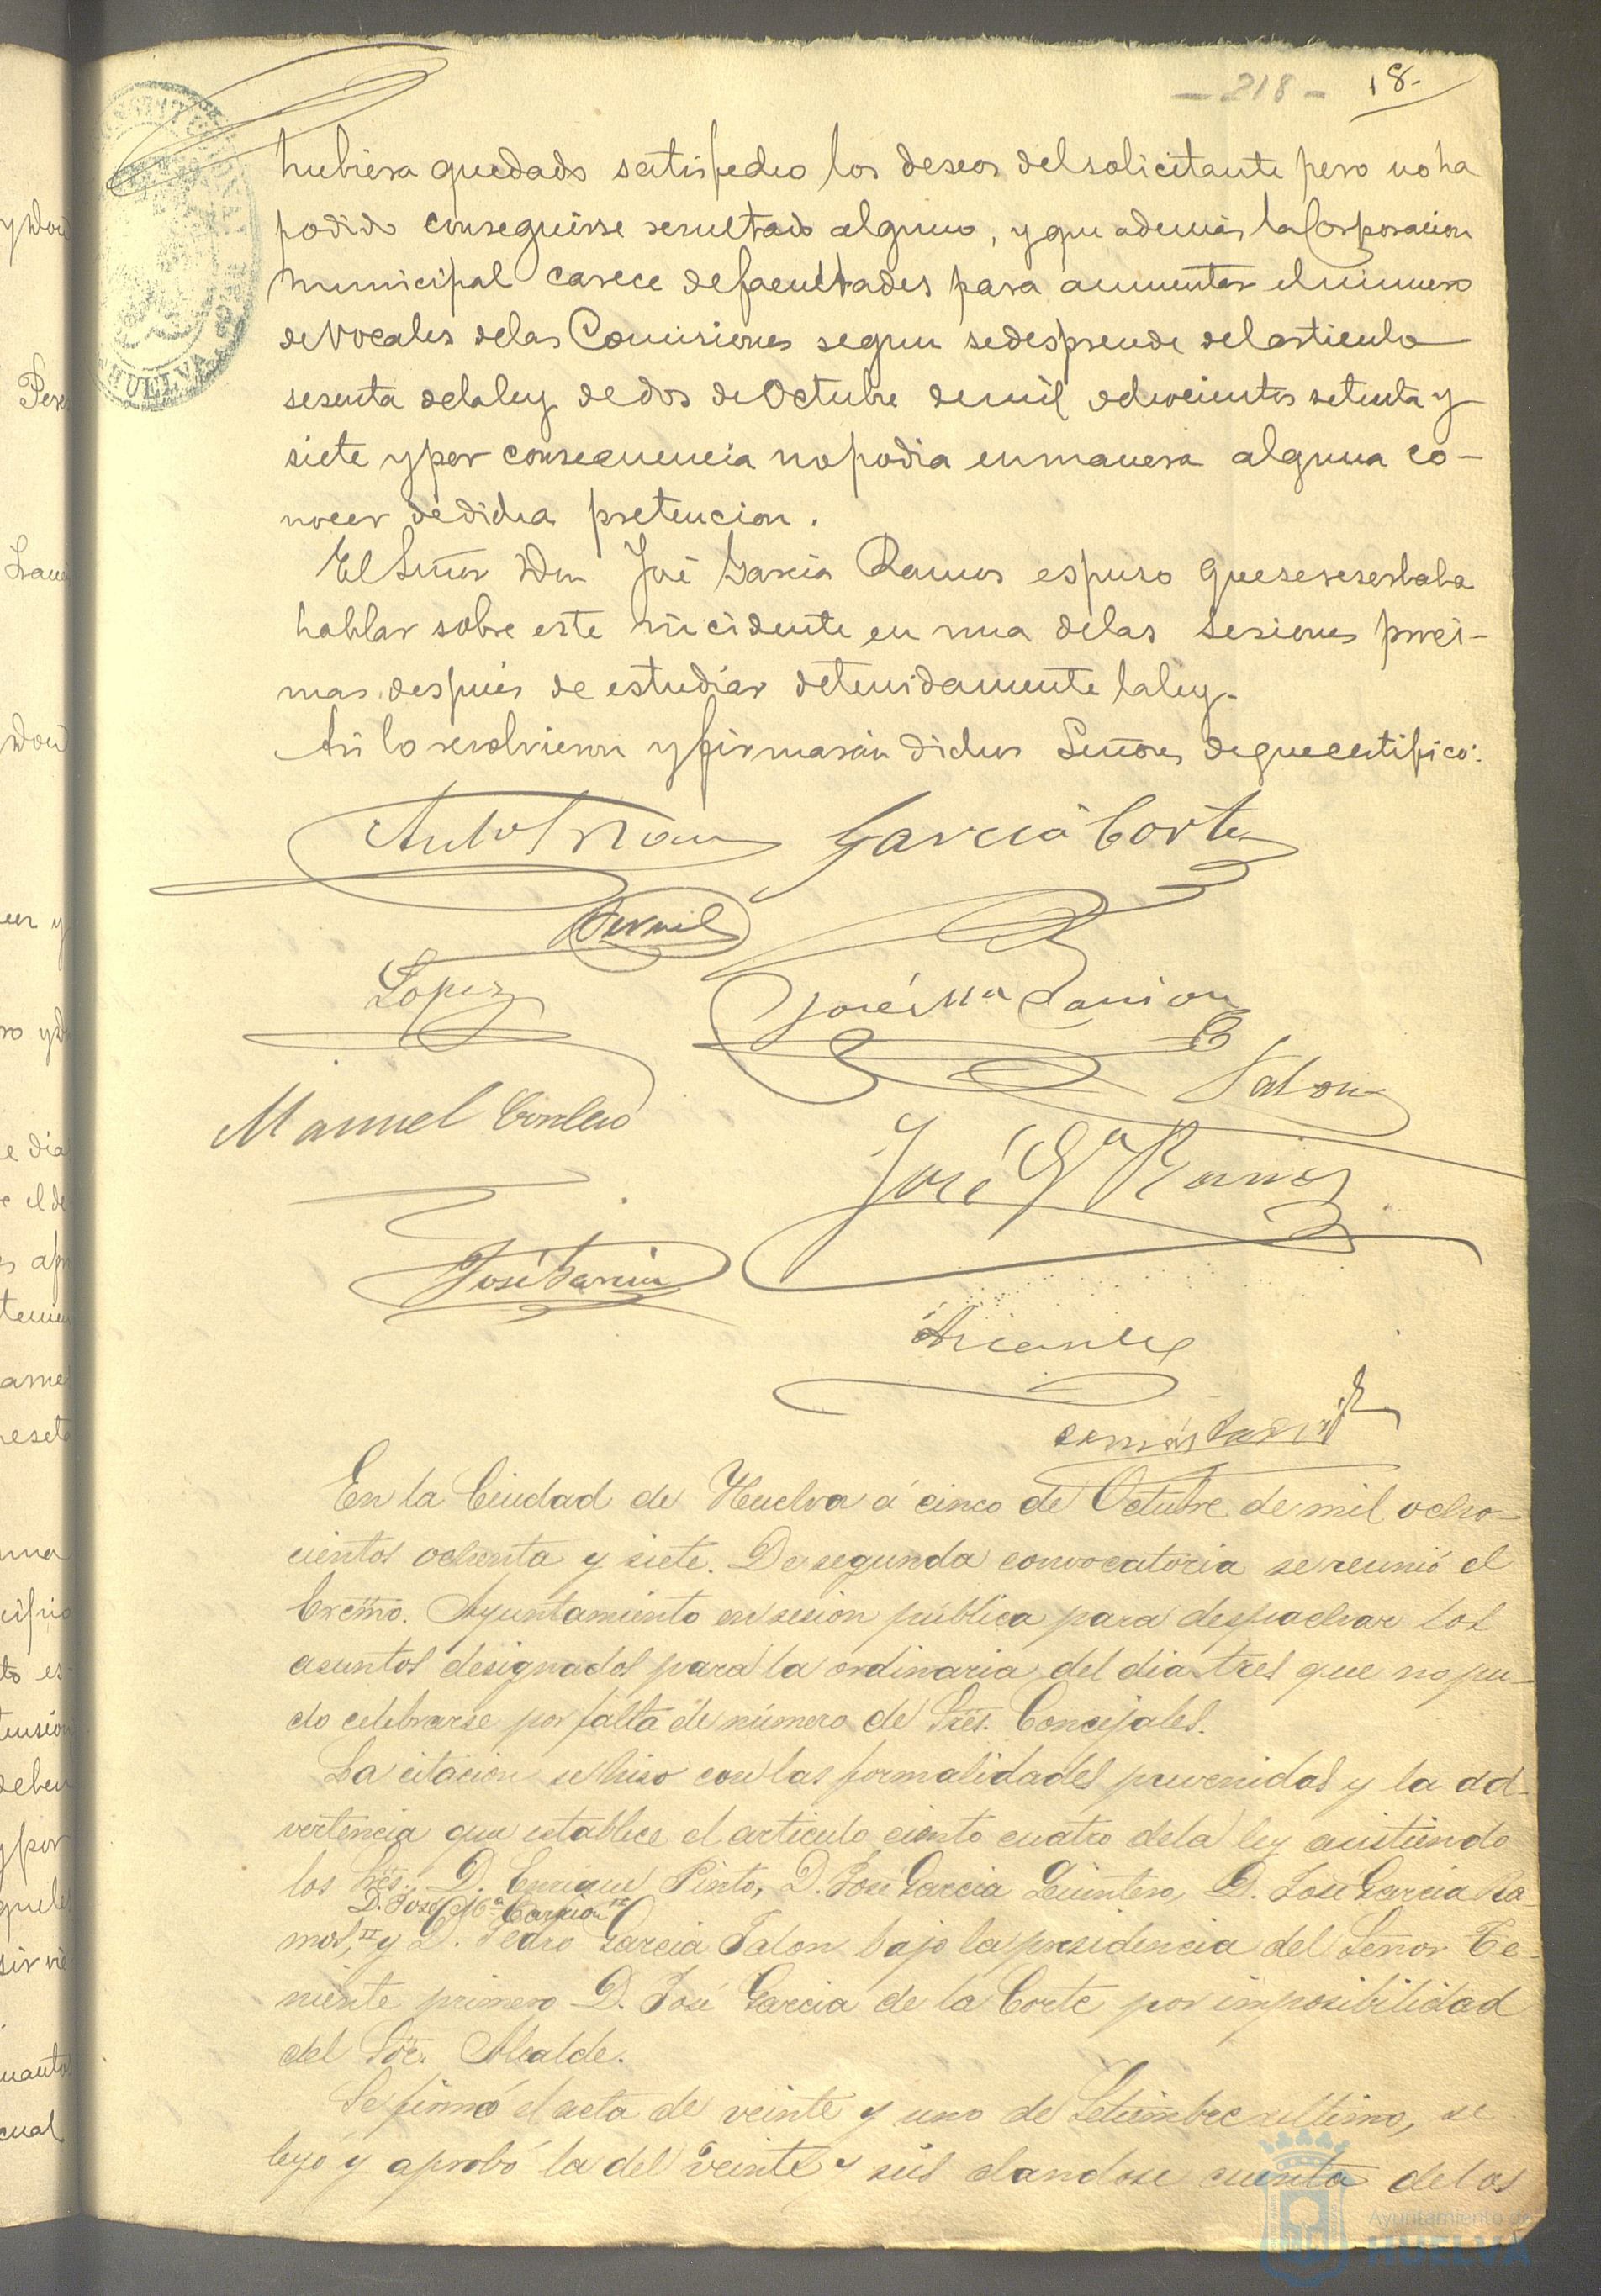 - 218 - 18.
hubiera quedado satisfecho los deseos del solicitante pero no ha
podido conseguirse resultado alguno, y que además la Corporacion
municipal carece de facultades para aumentar el número
de Vocales de las Comisiones segun se desprende del articulo
sesenta de la ley de dos de Octubre de mil ochocientos setenta y
siete y por consecuencia no podia en manera alguna co-
nocer de dicha pretencion.
El Señor Don José Garcia Ramos espuso que se reserbaba
hablar sobre este incidente en una de las sesiones procsi-
mas despues de estudiar detenidamente la ley.
Asi lo resolvieron y firmarán dichos Señores de que certifico:
Garcia Corte
Lopez
José Mª Carrion
Talon
Manuel Cordero
José Gª Ramos
José Garcia
En la Ciudad de Huelva á cinco de Octubre de mil ocho-
cientos ochenta y siete. De segunda convocatoria se reunió el
Excmo. Ayuntamiento en sesion pública para despachar los
asuntos designados para la ordinaria del dia tres que no pu-
do celebrarse por falta de número de Sres. Concejales.
La citacion se hiso con las formalidades prevenidas y la ad-
vertencia que establece el articulo ciento cuatro de la ley asistiendo
los Sres. D. Enrique Pinto, D. José Garcia Quintero, D. José Garcia Ra-
D. José Mª Carrion
mos, y D. Pedro Garcia Talon bajo la presidencia del Señor Te-
niente primero D. José Garcia de la Corte por imposibilidad
del Sor. Alcalde.
Se firmó el acta de veinte y uno de Setiembre ultimo, se
leyó y aprobó la del veinte y seis dandose cuenta de los
HUELVA
Ayuntamiento de
HUELVA